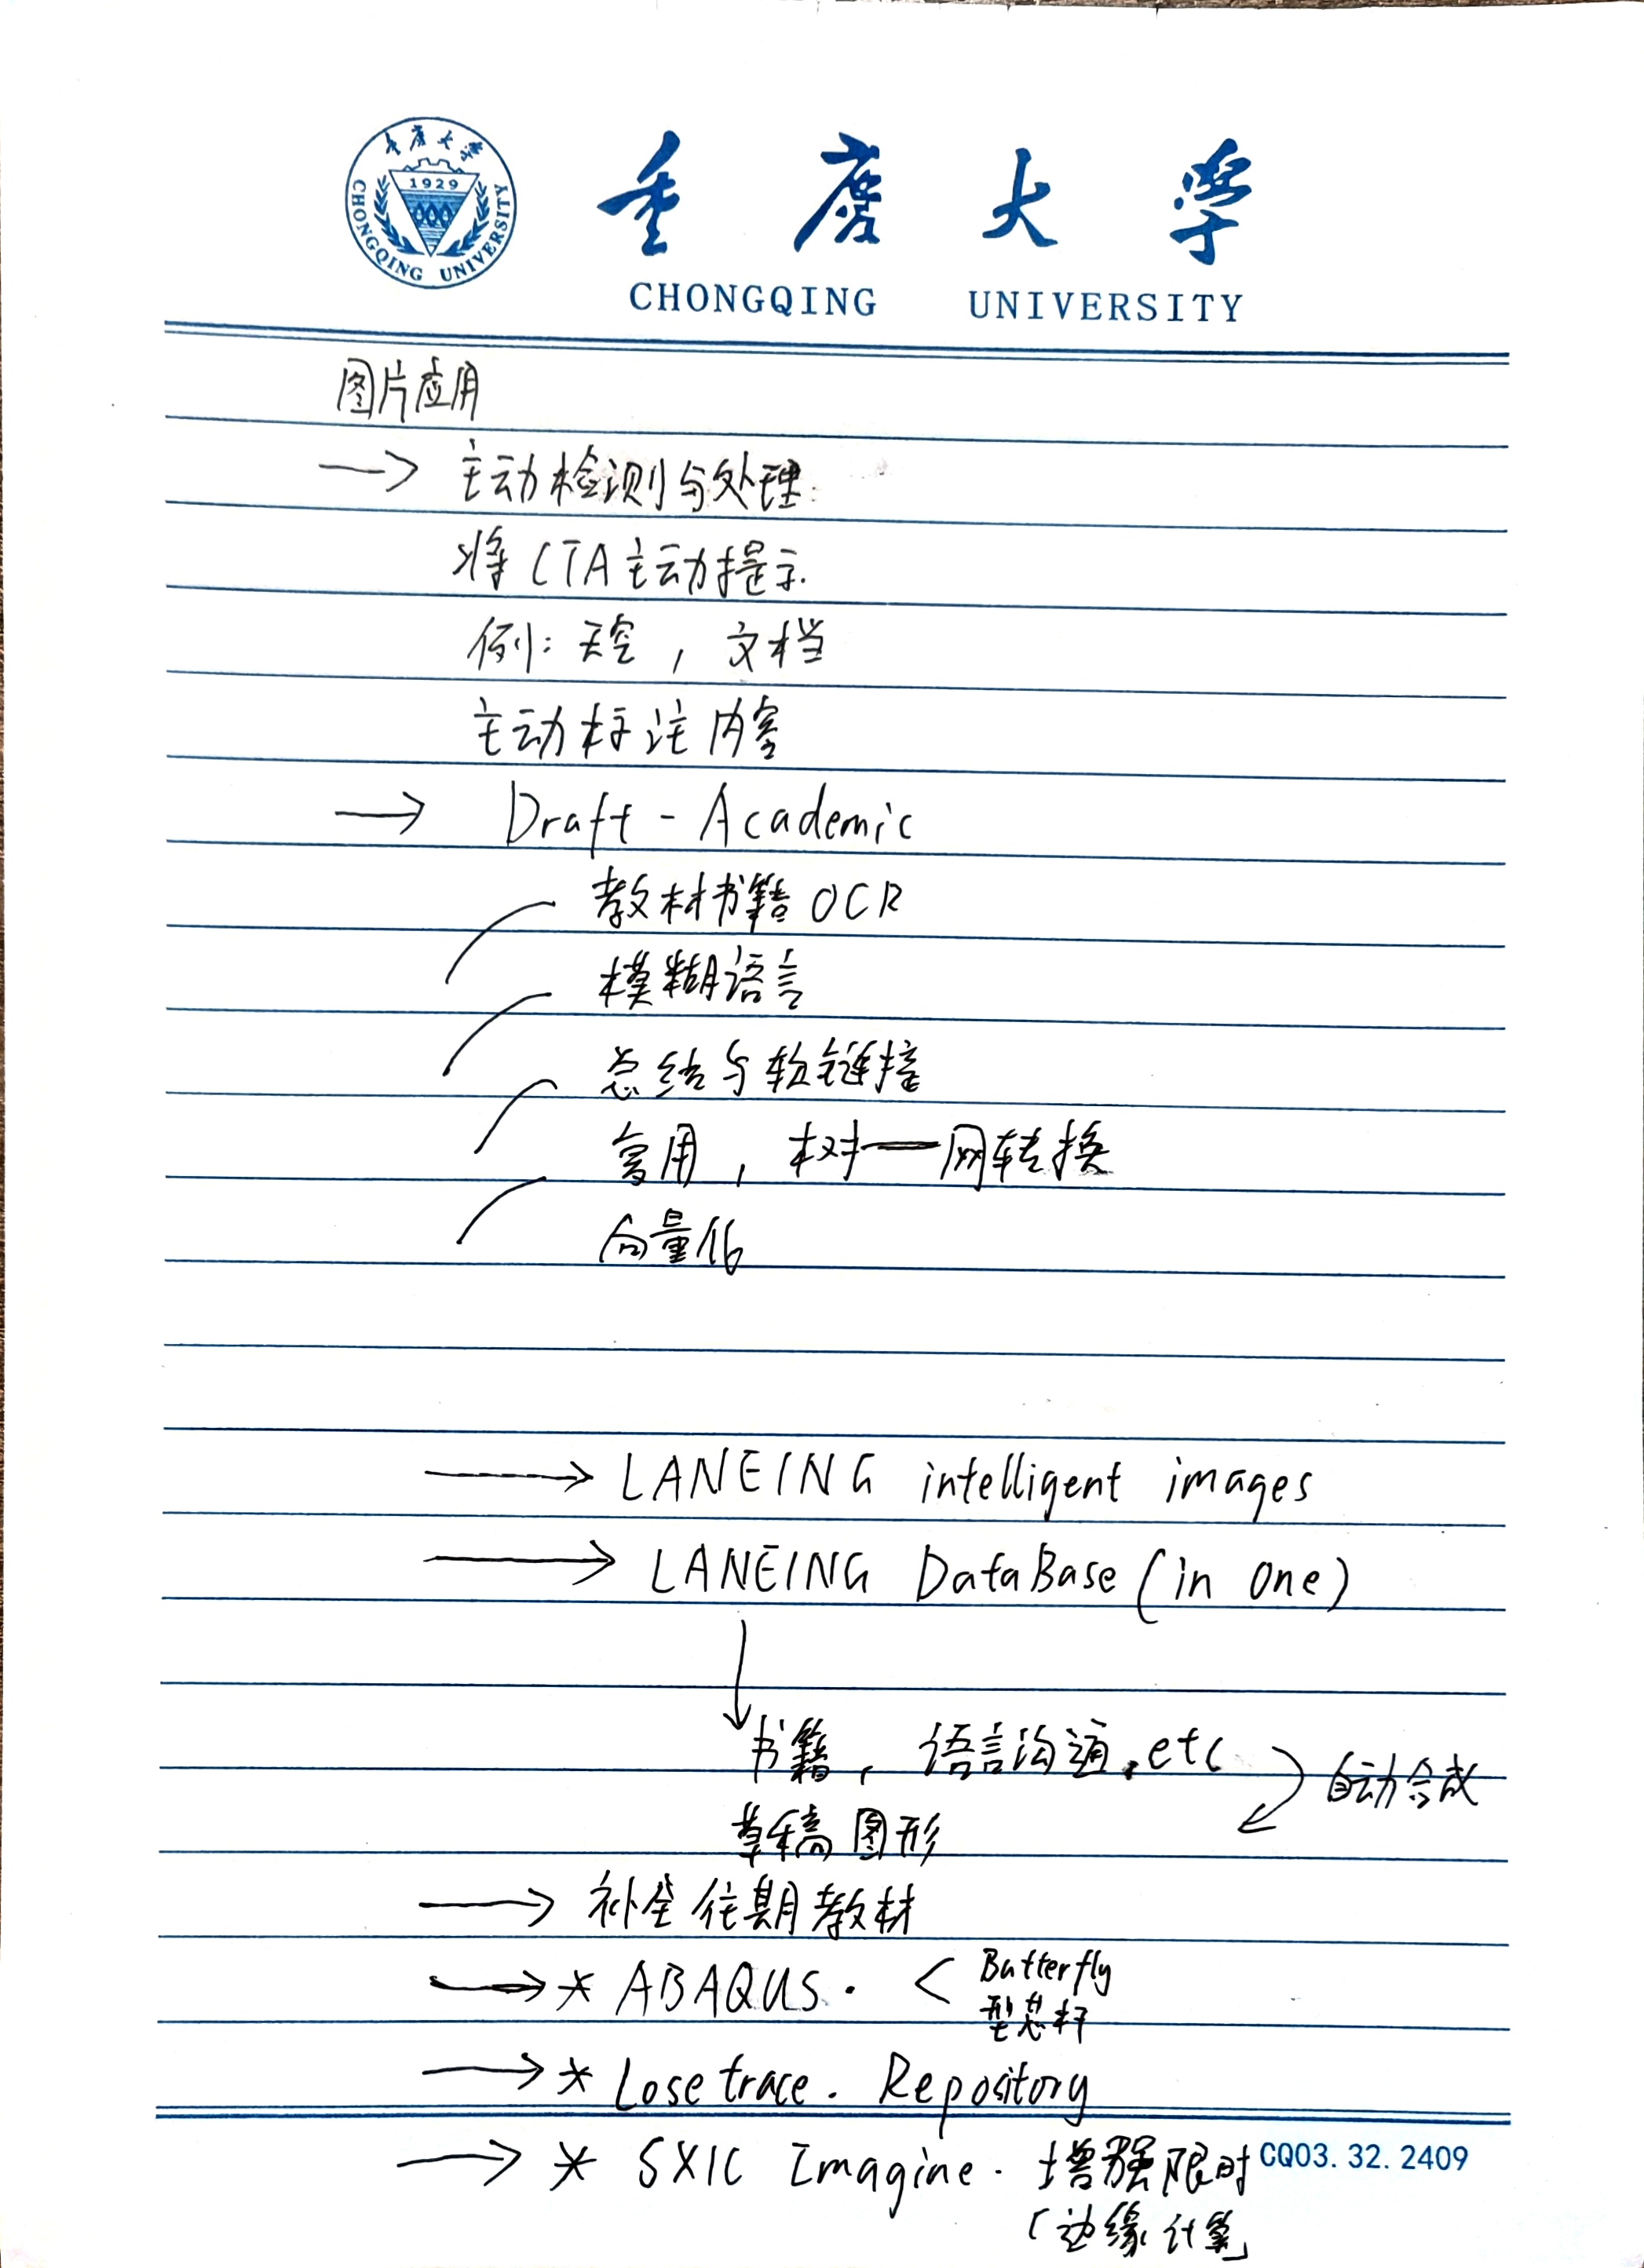 重庆大学
1929
CHONGQING UNIVERSITY
重庆大学
CHONGQING UNIVERSITY
图片应用
→ 主动检测与处理
将CTA主动提示
例: 天空, 文档
主动标注内容
→ Draft - Academic
教材书籍 OCR
模糊语言
总结与软链接
复用, 树一网转换
向量化
→ LANEING intelligent images
→ LANEING DataBase (in one)
↓
书籍, 语言沟通, etc 自动合成
草稿图形
→ 补全往期教材
→ * ABAQUS. < Butterfly
型芯杆
→ * Lose trace. Repository
→ * SXIC Imagine. 增强限时
CQ03.32.2409
「边缘计算」